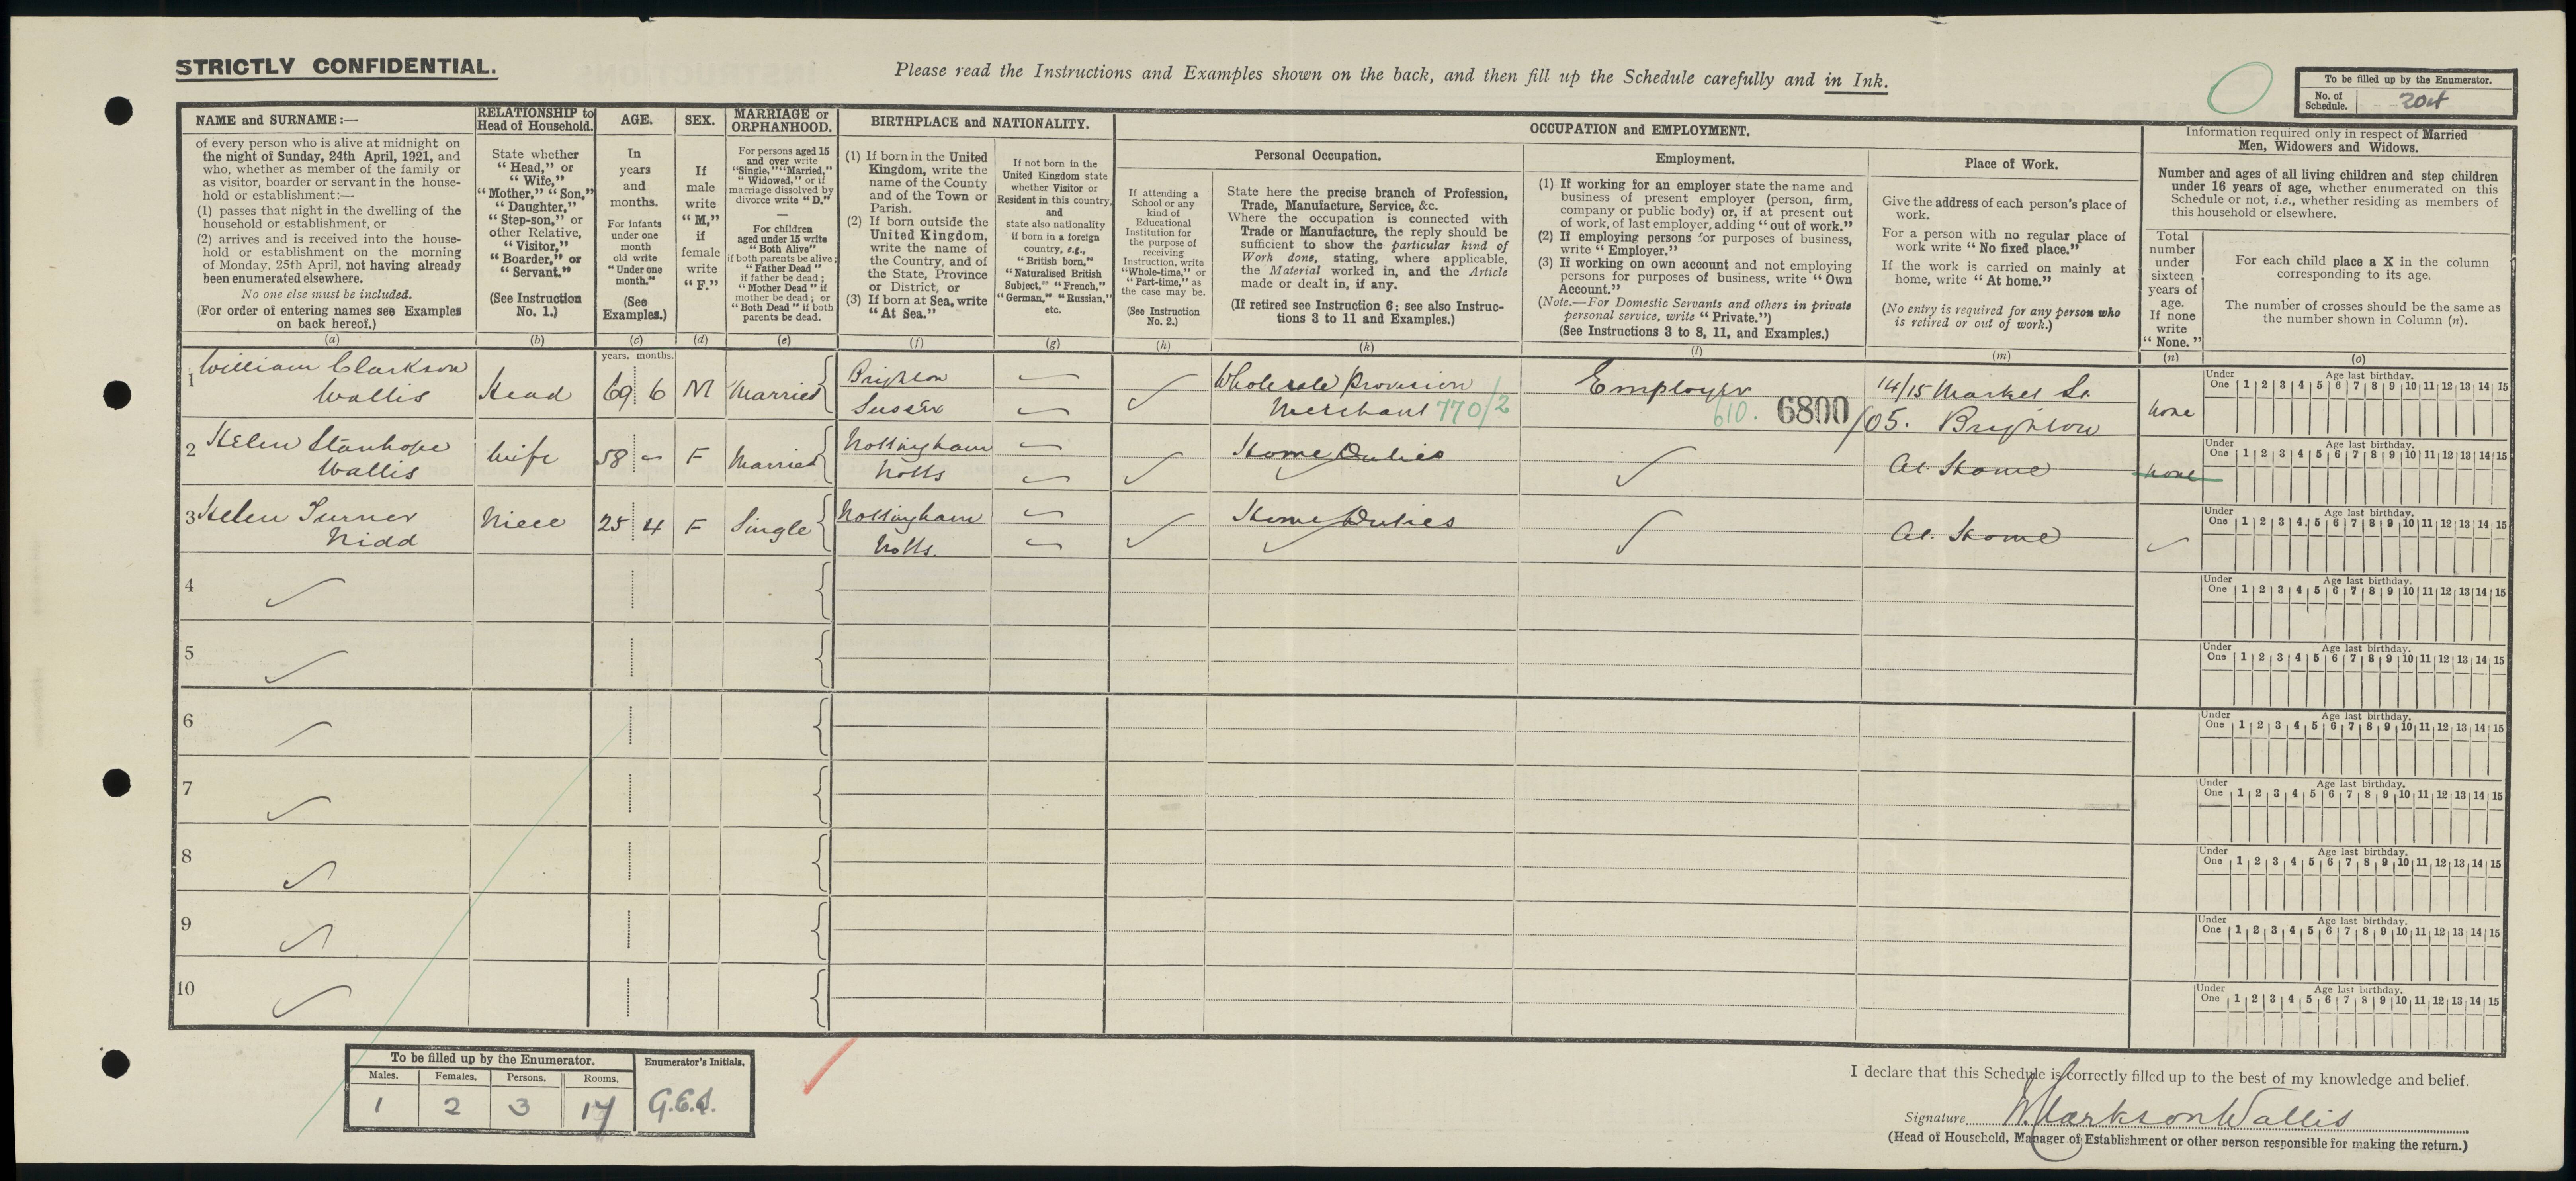 STRICTLY CONFIDENTIAL.
Please read the Instructions and Examples shown on the back, and then fill up the Schedule carefully and in Ink.
To be filled up by the Enumerator.
No. of Schedule.
NAME and SURNAME:—
of every person who is alive at midnight on
the night of Sunday, 24th April, 1921, and
who, whether as member of the family or
as visitor, boarder or servant in the house-
hold or establishment:—
(1) passes that night in the dwelling of the
household or establishment, or
(2) arrives and is received into the house-
hold or establishment on the morning
of Monday, 25th April, not having already
been enumerated elsewhere.
No one else must be included.
(For order of entering names see Examples
on back hereof.)
(a)
RELATIONSHIP to
Head of Household.
State whether
"Head," or
"Wife,"
"Mother," "Son,"
"Daughter,"
"Step-son," or
other Relative,
"Visitor,"
"Boarder," or
"Servant."
(See Instruction
No. 1.)
(b)
AGE.
In
years
and
months.
For infants
under one
month
old write
"Under one
month."
(See
Examples.)
(c)
SEX.
If
male
write
"M,"
if
female
write
"F."
(d)
MARRIAGE or
ORPHANHOOD.
For persons aged 15
and over write
"Single," "Married,"
"Widowed," or if
marriage dissolved by
divorce write "D."
—
For children
aged under 15 write
"Both Alive"
if both parents be alive;
"Father Dead"
if father be dead;
"Mother Dead" if
mother be dead; or
"Both Dead" if both
parents be dead.
(e)
BIRTHPLACE and NATIONALITY.
(1) If born in the United
Kingdom, write the
name of the County
and of the Town or
Parish.
(2) If born outside the
United Kingdom,
write the name of
the Country, and of
the State, Province
or District, or
(3) If born at Sea, write
"At Sea."
(f)
If not born in the
United Kingdom state
whether Visitor or
Resident in this country,
and
state also nationality
if born in a foreign
country, e.g.,
"British born,"
"Naturalised British
Subject," "French,"
"German," "Russian,"
etc.
(g)
OCCUPATION and EMPLOYMENT.
If attending a
School or any
kind of
Educational
Institution for
the purpose of
receiving
Instruction, write
"Whole-time," or
"Part-time," as
the case may be.
(See Instruction
No. 2.)
(h)
Personal Occupation.
State here the precise branch of Profession,
Trade, Manufacture, Service, &c.
Where the occupation is connected with
Trade or Manufacture, the reply should be
sufficient to show the particular kind of
Work done, stating, where applicable,
the Material worked in, and the Article
made or dealt in, if any.
(If retired see Instruction 6; see also Instruc-
tions 3 to 11 and Examples.)
(k)
Employment.
(1) If working for an employer state the name and
business of present employer (person, firm,
company or public body) or, if at present out
of work, of last employer, adding "out of work."
(2) If employing persons for purposes of business,
write "Employer."
(3) If working on own account and not employing
persons for purposes of business, write "Own
Account."
(Note.—For Domestic Servants and others in private
personal service, write "Private.")
(See Instructions 3 to 8, 11, and Examples.)
(l)
Place of Work.
Give the address of each person's place of
work.
For a person with no regular place of
work write "No fixed place."
If the work is carried on mainly at
home, write "At home."
(No entry is required for any person who
is retired or out of work.)
(m)
Information required only in respect of Married
Men, Widowers and Widows.
Number and ages of all living children and step children
under 16 years of age, whether enumerated on this
Schedule or not, i.e., whether residing as members of
this household or elsewhere.
Total
number
under
sixteen
years of
age.
If none
write
"None."
(n)
For each child place a X in the column
corresponding to its age.
The number of crosses should be the same as
the number shown in Column (n).
(o)
years. months.
1 William Clarkson Wallis Head 69 6 M Married Brighton Sussex Wholesale Provision Merchant 770/2 Employer 610. 6800/05. 14/15 Market St. Brighton none
Under One 1 2 3 4 5 6 7 8 9 10 11 12 13 14 15 Age last birthday.
2 Helen Stanhope Wallis Wife 58 – F Married Nottingham Notts Home Duties At Home none
Under One 1 2 3 4 5 6 7 8 9 10 11 12 13 14 15 Age last birthday.
3 Helen Turner Nidd Niece 25 4 F Single Nottingham Notts. Home Duties At Home
Under One 1 2 3 4 5 6 7 8 9 10 11 12 13 14 15 Age last birthday.
4
Under One 1 2 3 4 5 6 7 8 9 10 11 12 13 14 15 Age last birthday.
5
Under One 1 2 3 4 5 6 7 8 9 10 11 12 13 14 15 Age last birthday.
6
Under One 1 2 3 4 5 6 7 8 9 10 11 12 13 14 15 Age last birthday.
7
Under One 1 2 3 4 5 6 7 8 9 10 11 12 13 14 15 Age last birthday.
8
Under One 1 2 3 4 5 6 7 8 9 10 11 12 13 14 15 Age last birthday.
9
Under One 1 2 3 4 5 6 7 8 9 10 11 12 13 14 15 Age last birthday.
10
Under One 1 2 3 4 5 6 7 8 9 10 11 12 13 14 15 Age last birthday.
To be filled up by the Enumerator.
Males. Females. Persons. Rooms.
1 2 3 17
Enumerator's Initials.
I declare that this Schedule is correctly filled up to the best of my knowledge and belief.
Signature W. Clarkson Wallis
(Head of Household, Manager of Establishment or other person responsible for making the return.)